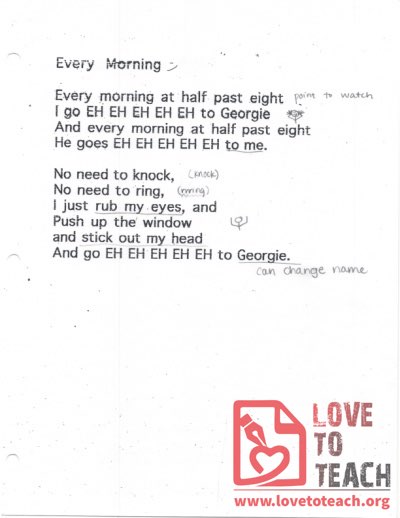 Every Morning
Every morning at half past eight point to watch
I go EH EH EH EH EH to Georgie
And every morning at half past eight
He goes EH EH EH EH EH to me.
No need to knock, (knock)
No need to ring, (rrring)
I just rub my eyes, and
Push up the window
and stick out my head
And go EH EH EH EH EH to Georgie.
can change name
LOVE
TO
TEACH
www.lovetoteach.org